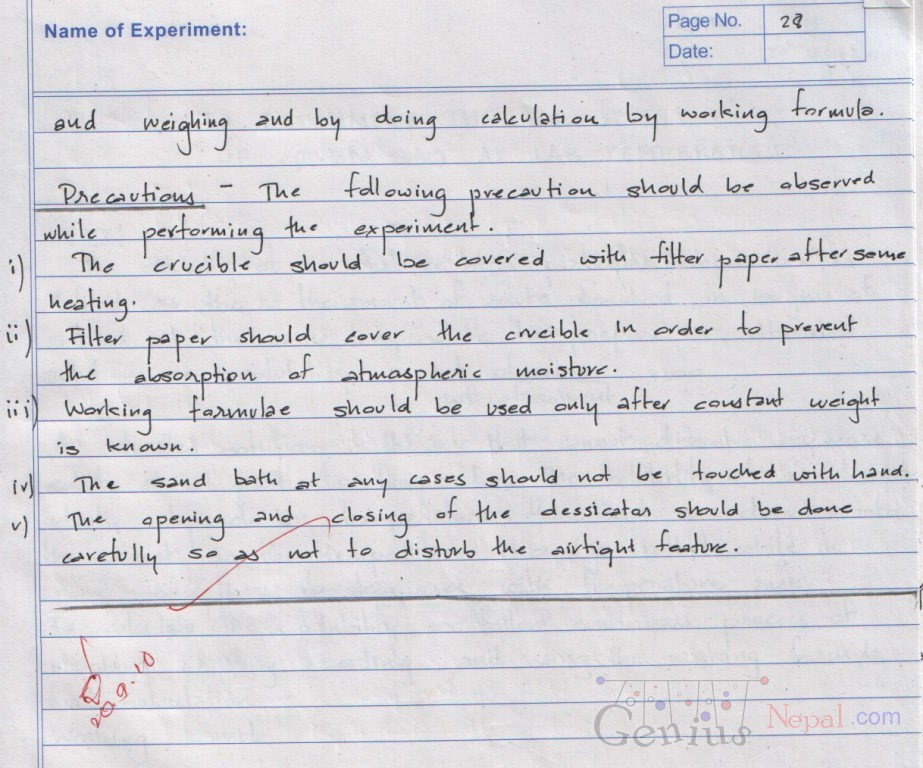 Name of Experiment:
Page No. 28
Date:
and weighing and by doing calculation by working formula.
Precautions - The following precaution should be observed
while performing the experiment.
i) The crucible should be covered with filter paper after some
heating.
ii) Filter paper should cover the crucible in order to prevent
the absorption of atmaspheric moisture.
iii) Working farmulae should be used only after constant weight
is known.
iv) The sand bath at any cases should not be touched with hand.
v) The opening and closing of the dessicator should be done
carefully so as not to disturb the airtight feature.
20.9.10
Genius Nepal.com